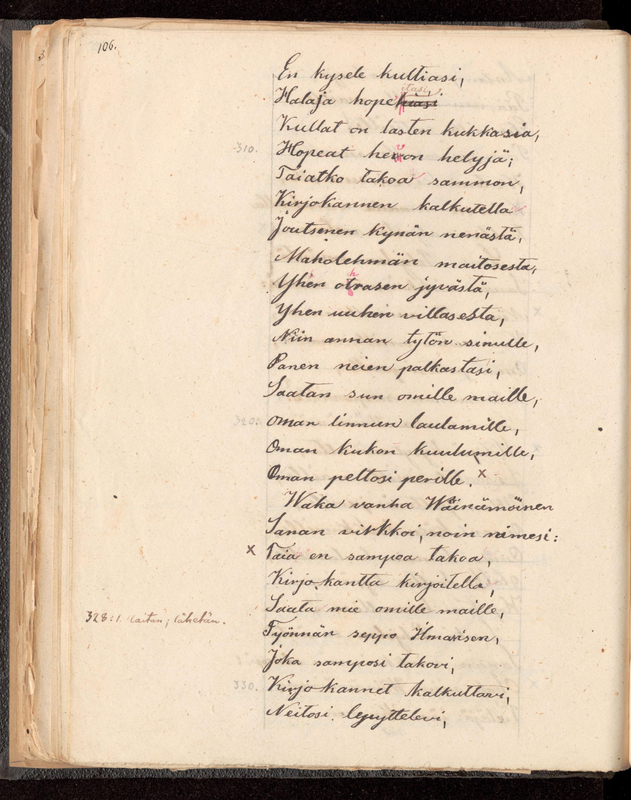 106.
En kysele kultiasi,
Halaja hopeitasi,
Kullat on lasten kukkasia,
310. Hopeat heroon helyjä;
Taiatko takoa sammon,
Kirjokannen kalkutella
Joutsenen kynän nenästä,
Maholehmän maitosesta,
Yhen otrasen jyvästä,
Yhen uuhen villasesta,
Niin annan tytön sinulle,
Panen neien palkastasi,
Saatan sun omille maille,
320. oman linnun laulamille,
Oman kukon kuulumille,
Oman peltosi perille. x
Waka vanha Wäinämöinen
Sanan virkkoi, noin nimesi:
x Taia en sampoa takoa,
Kirjo kantta kirjoitella,
Saata mie omille maille,
328: 1. laitan; lähetän.
Työnnän seppo Ilmarisen,
Joka samposi takovi,
330. Kirjo kannet kalkuttavi,
Neitosi lepyttelevi,